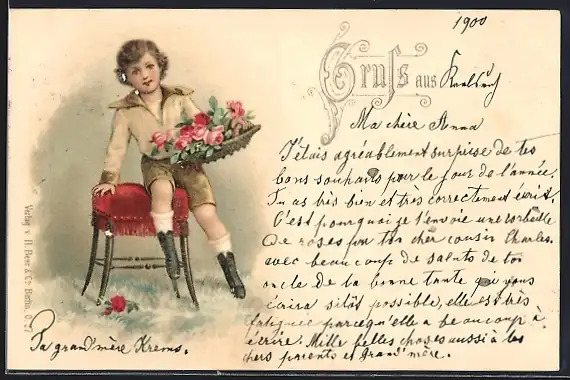 1900
Gruss aus
Ma chère Anna
J'étais agréablement surprise de tes
bons souhaits pour le jour de l'année.
Tu as très bien et très correctement écrit.
C'est pourquoi je t'envoie une corbeille
de roses par ton cher cousin Charles.
avec beaucoup de saluts de ton
oncle de la bonne tante qui vous
écrira sitôt possible, elle est très
fatiguée parcequ'elle a beaucoup à
écrire. Mille belles choses aussi à tes
chers parents et Grand'mère.
Ta grand'mère Krems.
Verlag v. H. & Co Berlin. O 27